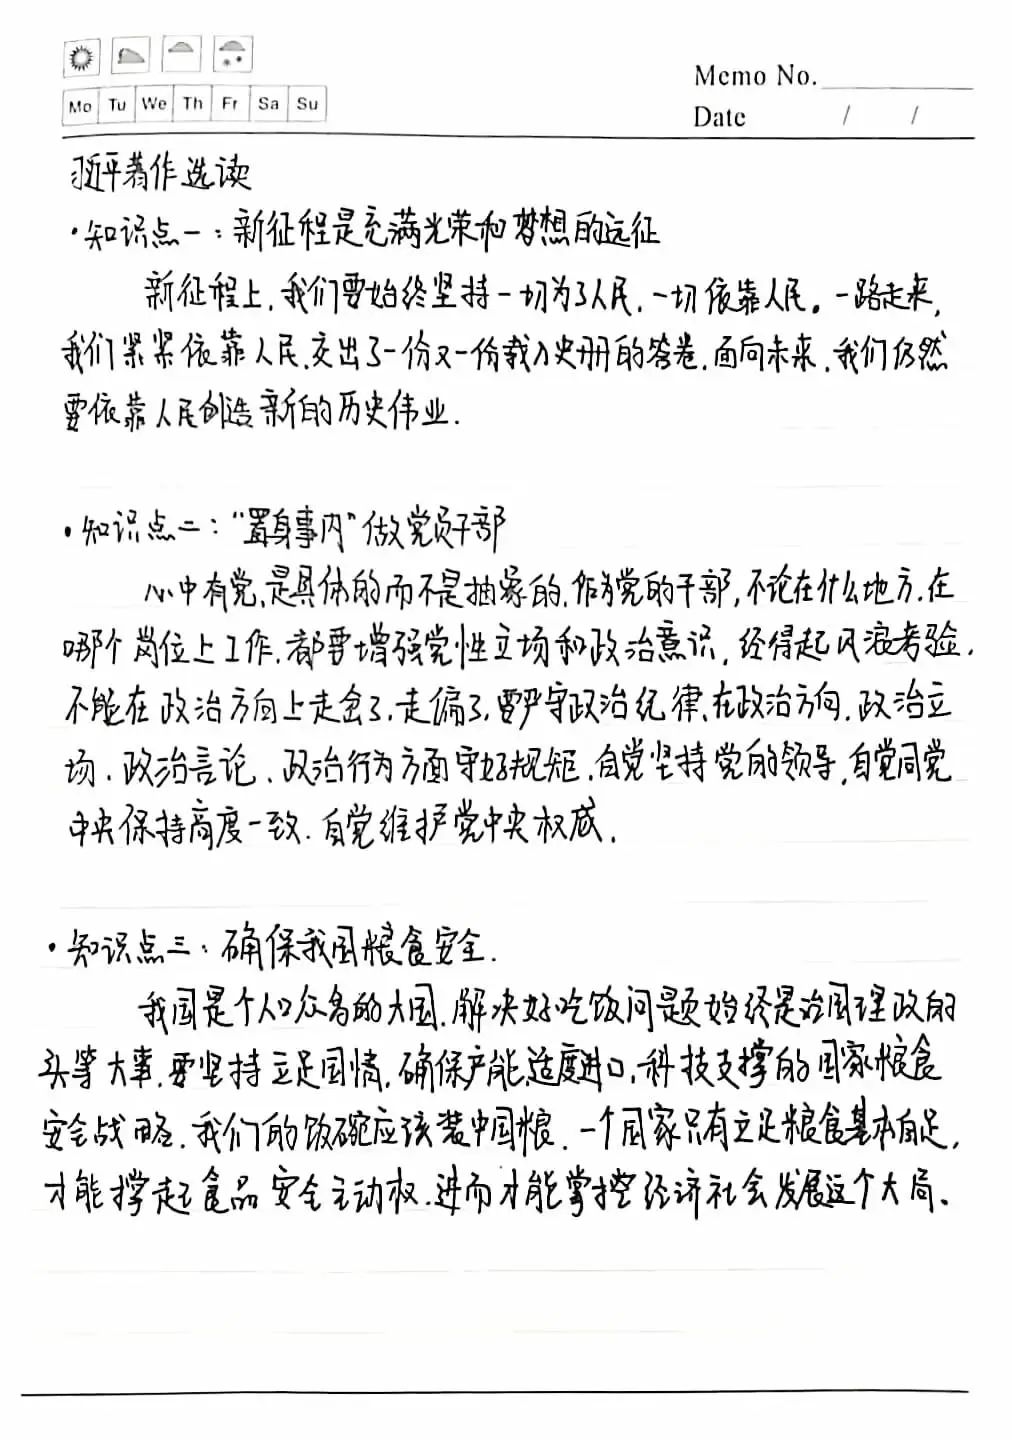 Memo No.
Mo Tu We Th Fr Sa Su
Date / /
习近平著作选读
·知识点一：新征程是充满光荣和梦想的远征
新征程上，我们要始终坚持一切为了人民，一切依靠人民。一路走来，
我们紧紧依靠人民，交出了一份又一份载入史册的答卷，面向未来，我们仍然
要依靠人民创造新的历史伟业．
·知识点二："置身事内"做党员干部
心中有党，是具体的而不是抽象的，作为党的干部，不论在什么地方，在
哪个岗位上工作，都要增强党性立场和政治意识，经得起风浪考验，
不能在政治方向上走岔了，走偏了，要严守政治纪律，在政治方向，政治立
场、政治言论、政治行为方面守好规矩，自觉坚持党的领导，自觉同党
中央保持高度一致．自觉维护党中央权威．
·知识点三：确保我国粮食安全．
我国是个人口众多的大国，解决好吃饭问题始终是治国理政的
头等大事，要坚持立足国情，确保产能，适度进口，科技支撑的国家粮食
安全战略，我们的饭碗应该装中国粮，一个国家只有立足粮食基本自足，
才能撑起食品安全主动权．进而才能掌控经济社会发展这个大局、